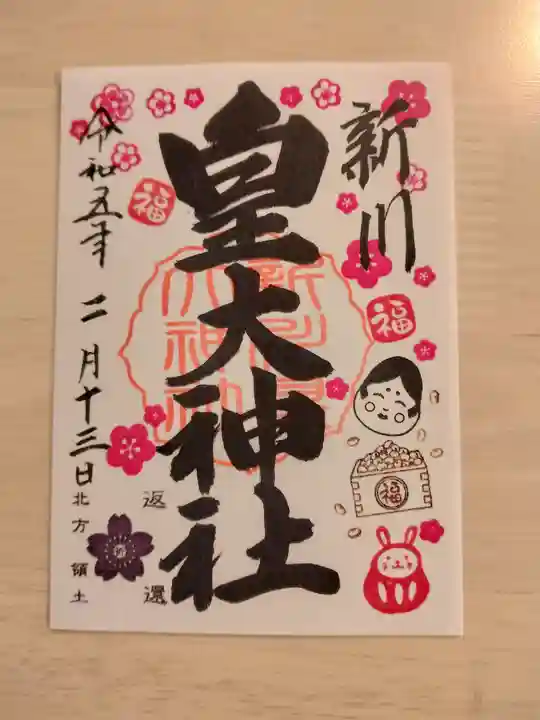 新川
皇大神社
令和五年 二月十三日
北方領土
返還
福
福
福